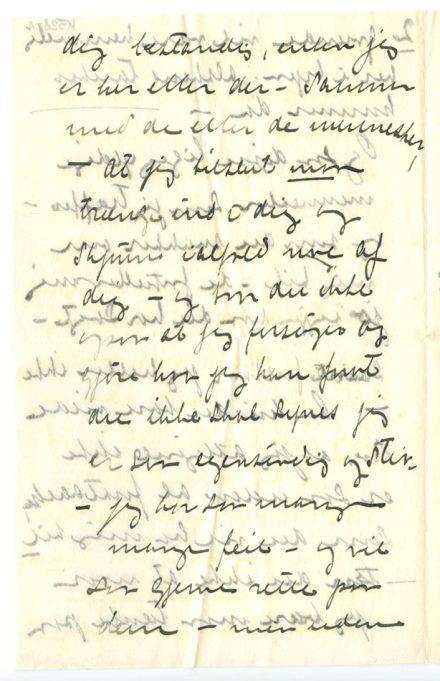 dig bestandig, enten jeg
er her eller der – sammen
med de eller de mennesker,
– at jeg tilslut må
trænge ind i dig og
skjønne ialfald noe af
dig – og tror du ikke
også at jeg forsøger og
gjøre hva jeg kan forat
du ikke skal synes jeg
er så egensindig og stiv
– jeg har så mange
mange feil – og vil
så gjerne rette på
dem – men uden